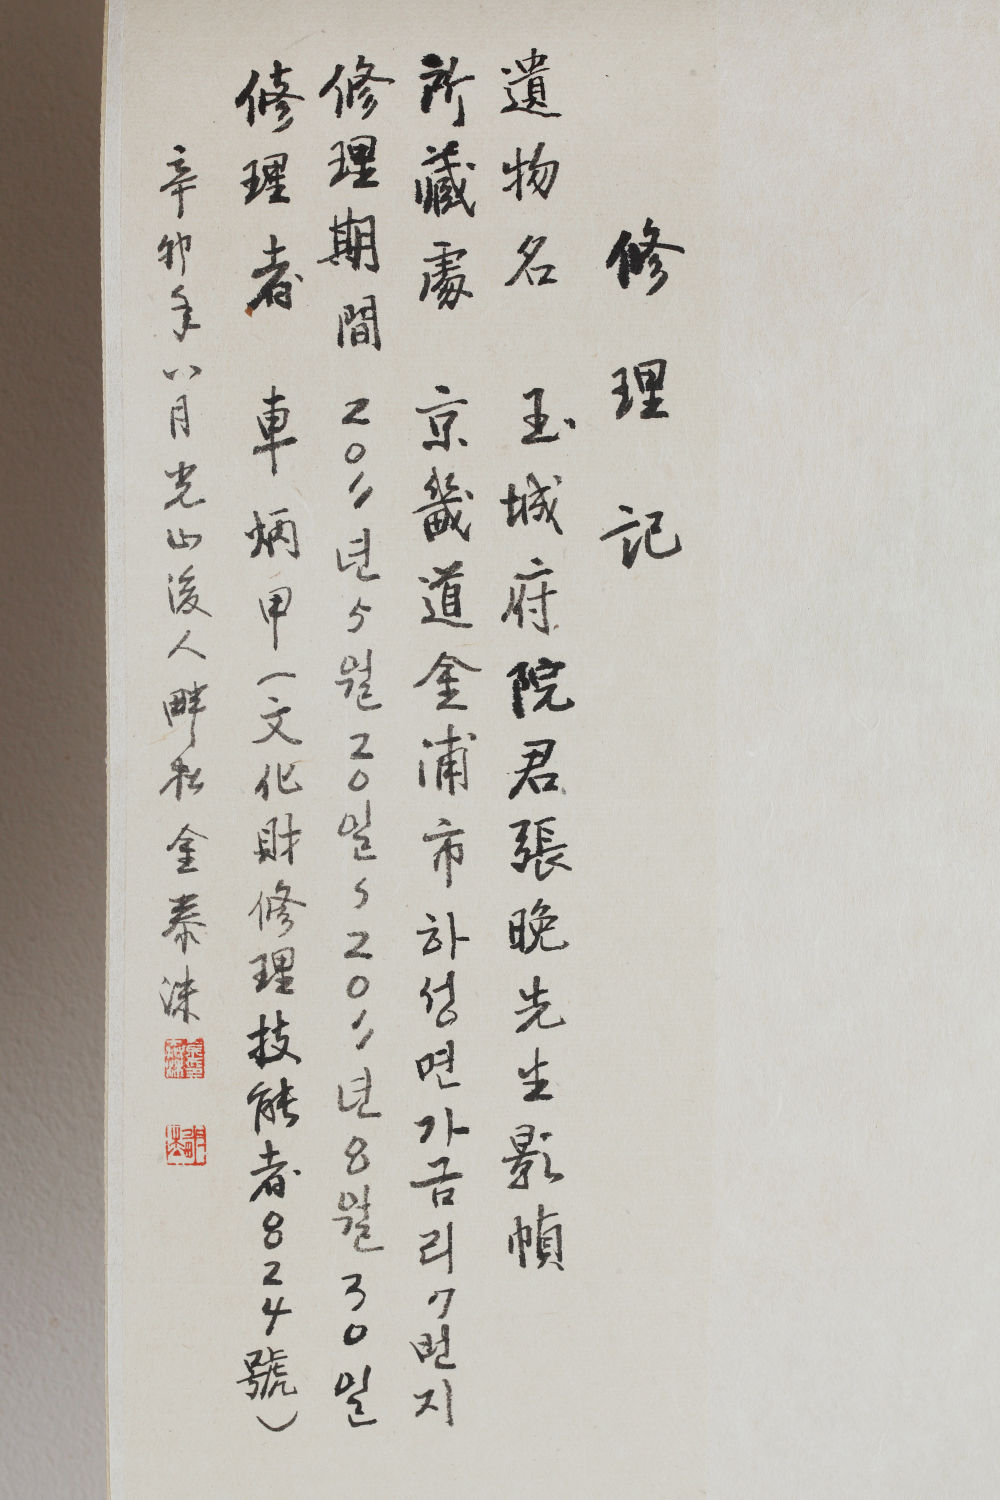 修理記
遺物名 玉城府院君張晩先生影幀
所藏處 京畿道金浦市하성면가금리7번지
修理期間 2011년5월20일~2011년8월30일
修理者 車炳甲(文化財修理技能者824號)
辛卯年八月光山後人畔松金泰洙